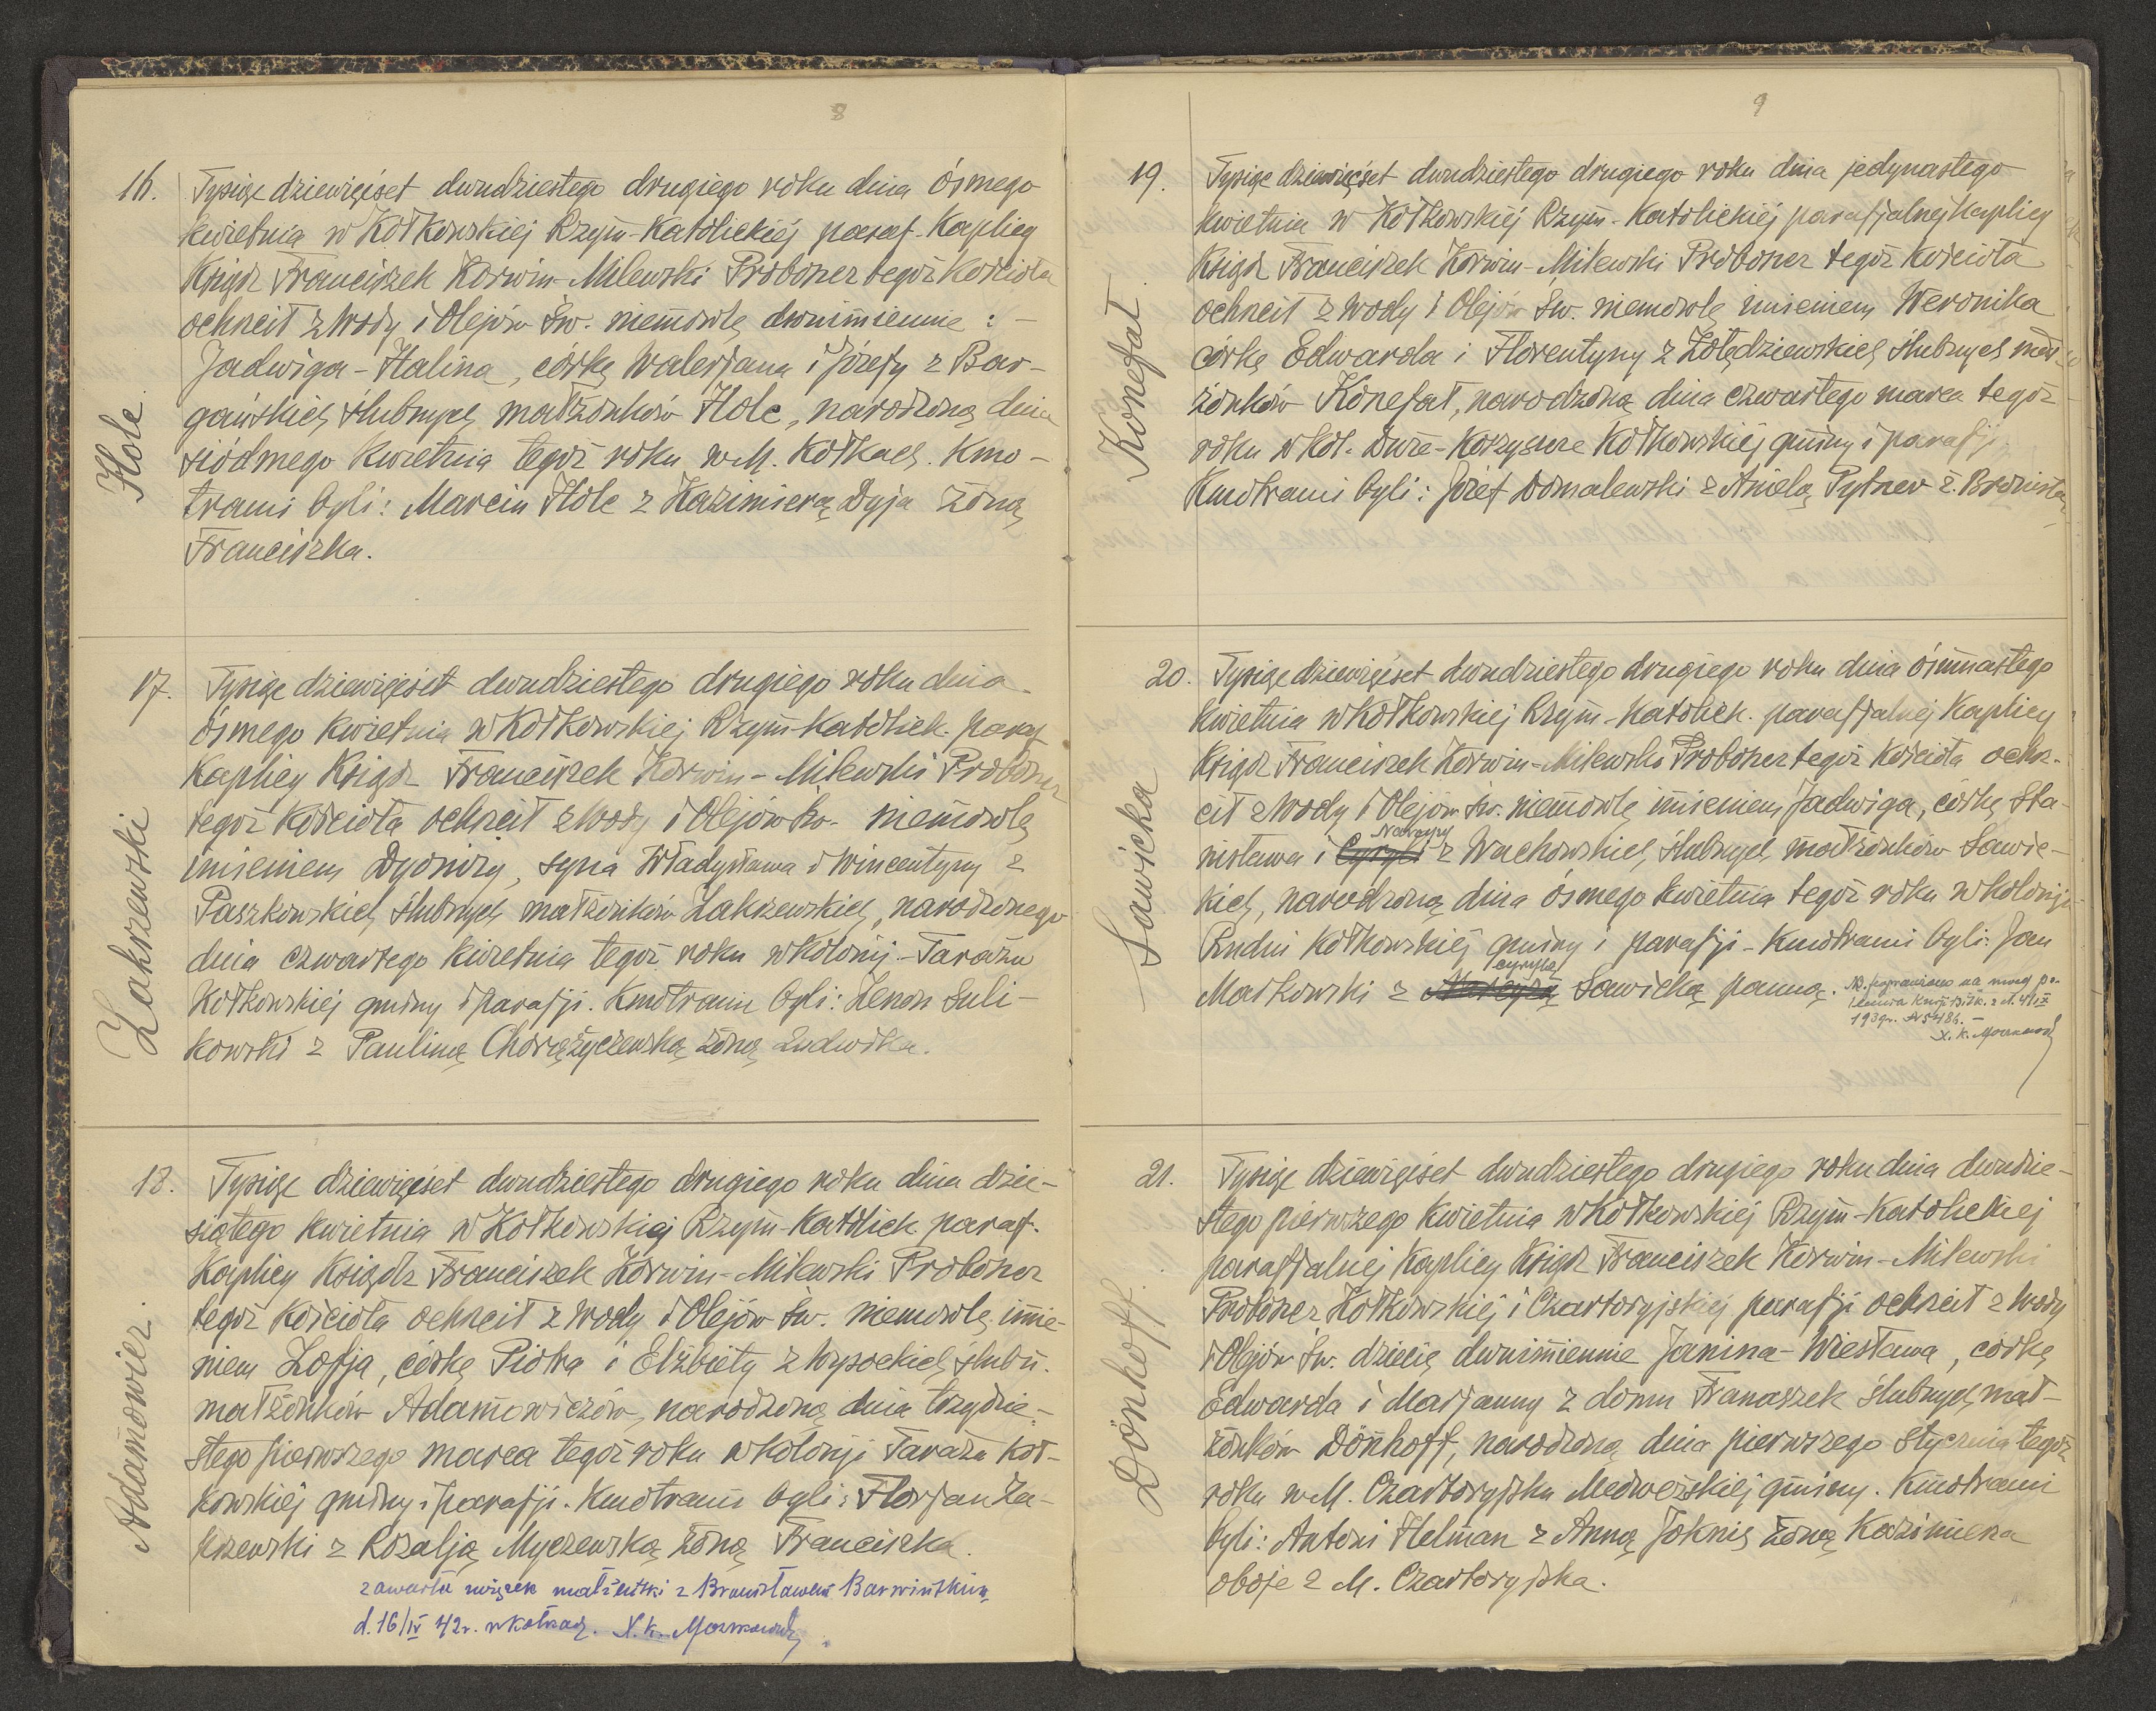 8
16.
Hole
Tysiąc dziewięćset dwudziestego drugiego roku dnia ósmego
kwietnia w Kołkowskiéj Rzym-Katolickiéj paraf. Kaplicy
Ksiądz Franciszek Korwin-Milewski Proboszcz tegoż Kościoła
ochrcił z wody i Olejów Św. niemowlę dwuimienne : -
Jadwiga - Halina, córkę Walerjana i Józefy z Bar-
gańskich ślubnych małżonków Hole, narodzoną dnia
siódmego kwietnia tegoż roku w M. Kołkach. Kmo-
trami byli: Marcin Hole z Kazimierą Dyja żoną
Franciszka.
17.
Zakrzewski
Tysiąc dziewięćset dwudziestego drugiego roku dnia
ósmego kwietnia w Kołkowskiej Rzym-Katolick. paraf
Kaplicy Ksiądz Franciszek Korwin-Milewski Proboszcz
tegoż Kościoła ochrcił z wody i Olejów Św. niemowlę
imieniem Dyonizy, syna Władysława i Wincentyny z
Paszkowskich ślubnych małżonków Zakrzewskich, narodzonego
dnia czwartego kwietnia tegoż roku w kolonij - Tarażu
Kołkowskiéj gminy i parafji. Kmotrami byli: Zenon Suli-
kowski z Pauliną Chorążyczewską żoną Ludwika.
18.
Adamowicz.
Tysiąc dziewięćset dwudziestego drugiego roku dnia dzie-
siątego kwietnia w Kołkowskiéj Rzym-Katolick paraf.
Kaplicy Ksiądz Franciszek Korwin-Milewski Proboszcz
tegoż Kościoła ochrcił z wody i Olejów Św. niemowlę imie-
niem Zofja, córkę Piotra i Elżbiety z Wysockich ślubn.
małżonków Adamowiczów, narodzoną dnia trzydzie-
stego pierwszego marca tegoż roku w kolonji Taraża Koł-
kowskiéj gminy i parafji. Kmotrami byli: Florjan Za-
krzewski z Rozalją Myczewską żoną Franciszka.
zawarła związek małżeński z Bronisławem Barwińskim
d. 16/IV 42 r. w Kołkach. X. K.
9
19.
Konefał.
Tysiąc dziewięćset dwudziestego drugiego roku dnia jedynastego
kwietnia w Kołkowskiéj Rzym.-Katolickiéj parafjalnej Kaplicy
Ksiądz Franciszek Korwin-Milewski Proboszcz tegoż Kościoła
ochrcił z wody i Olejów Św. niemowlę imieniem Weronika
córkę Edwarda i Florentyny z Żołędziewskich ślubnych mał-
żonków Konefał, narodzoną dnia czwartego marca tegoż
roku w kol. Duże-Koszyszcze Kołkowskiéj gminy i parafji.
Kmotrami byli: Józef Domalewski z Anielą Pytner ż. Bronisła
20.
Sawicka
Tysiąc dziewięćset dwudziestego drugiego roku dnia ósmnastego
kwietnia w Kołkowskiej Rzym-Katolick. parafjalnéj Kaplicy
Ksiądz Franciszek Korwin-Milewski Proboszcz tegoż Kościoła ochr-
cił z wody i Olejów Św. niemowlę imieniem Jadwiga, córkę Sta-
Narcyzy
nisława i Cyryli z Wachowskich, ślubnych małżonków Sawic-
kich, narodzoną dnia ósmego kwietnia tegoż roku w kolonji
Rudni Kołkowskiéj gminy i parafji - Kmotrami byli: Jan
cyrylą
Maskowski z Narcyzą Sawicką panną.
NB. poprawiono na mocy po-
lecenia Kurji Bisk. z d. 4/IX
1939r. № 5486. -
X. K.
21.
Dönhoff.
Tysiąc dziewięćset dwudziestego drugiego roku dnia dwudzie-
stego pierwszego kwietnia w Kołkowskiej Rzym-Katolickiej
parafjalnéj Kaplicy Ksiądz Franciszek Korwin-Milewski
Proboszcz Kołkowskiéj i Czartoryjskiéj parafji ochrcił z wody
i Olejów Św. dziecię dwuimienne Janina-Wiesława, córkę
Edwarda i Marjanny z domu Franaszek ślubnych mał-
żonków Dönhoff, narodzoną dnia pierwszego stycznia tegoż
roku w M. Czartoryjsku Medweżskiéj gminy. Kmotrami
byli: Antoni Helman z Anną Joknis żoną Kazimierza
oboje z M. Czartoryjska.